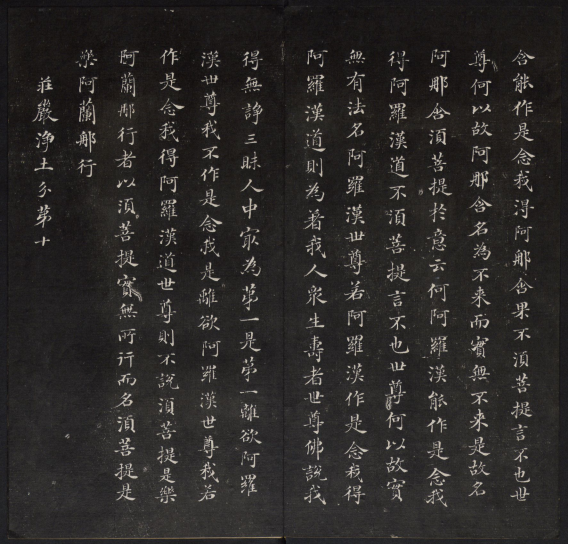 含能作是念我得阿那含果不須菩提言不也世
尊何以故阿那含名為不来而實無不来是故名
阿那含須菩提於意云何阿羅漢能作是念我
得阿羅漢道不須菩提言不也世尊何以故實
無有法名阿羅漢世尊若阿羅漢作是念我得
阿羅漢道則為著我人衆生壽者世尊佛說我
得無諍三昧人中㝡為第一是第一離欲阿羅
漢世尊我不作是念我是離欲阿羅漢世尊我若
作是念我得阿羅漢道世尊則不說須菩提是樂
阿蘭那行者以須菩提實無所行而名須菩提是
樂阿蘭那行
莊嚴淨土分第十